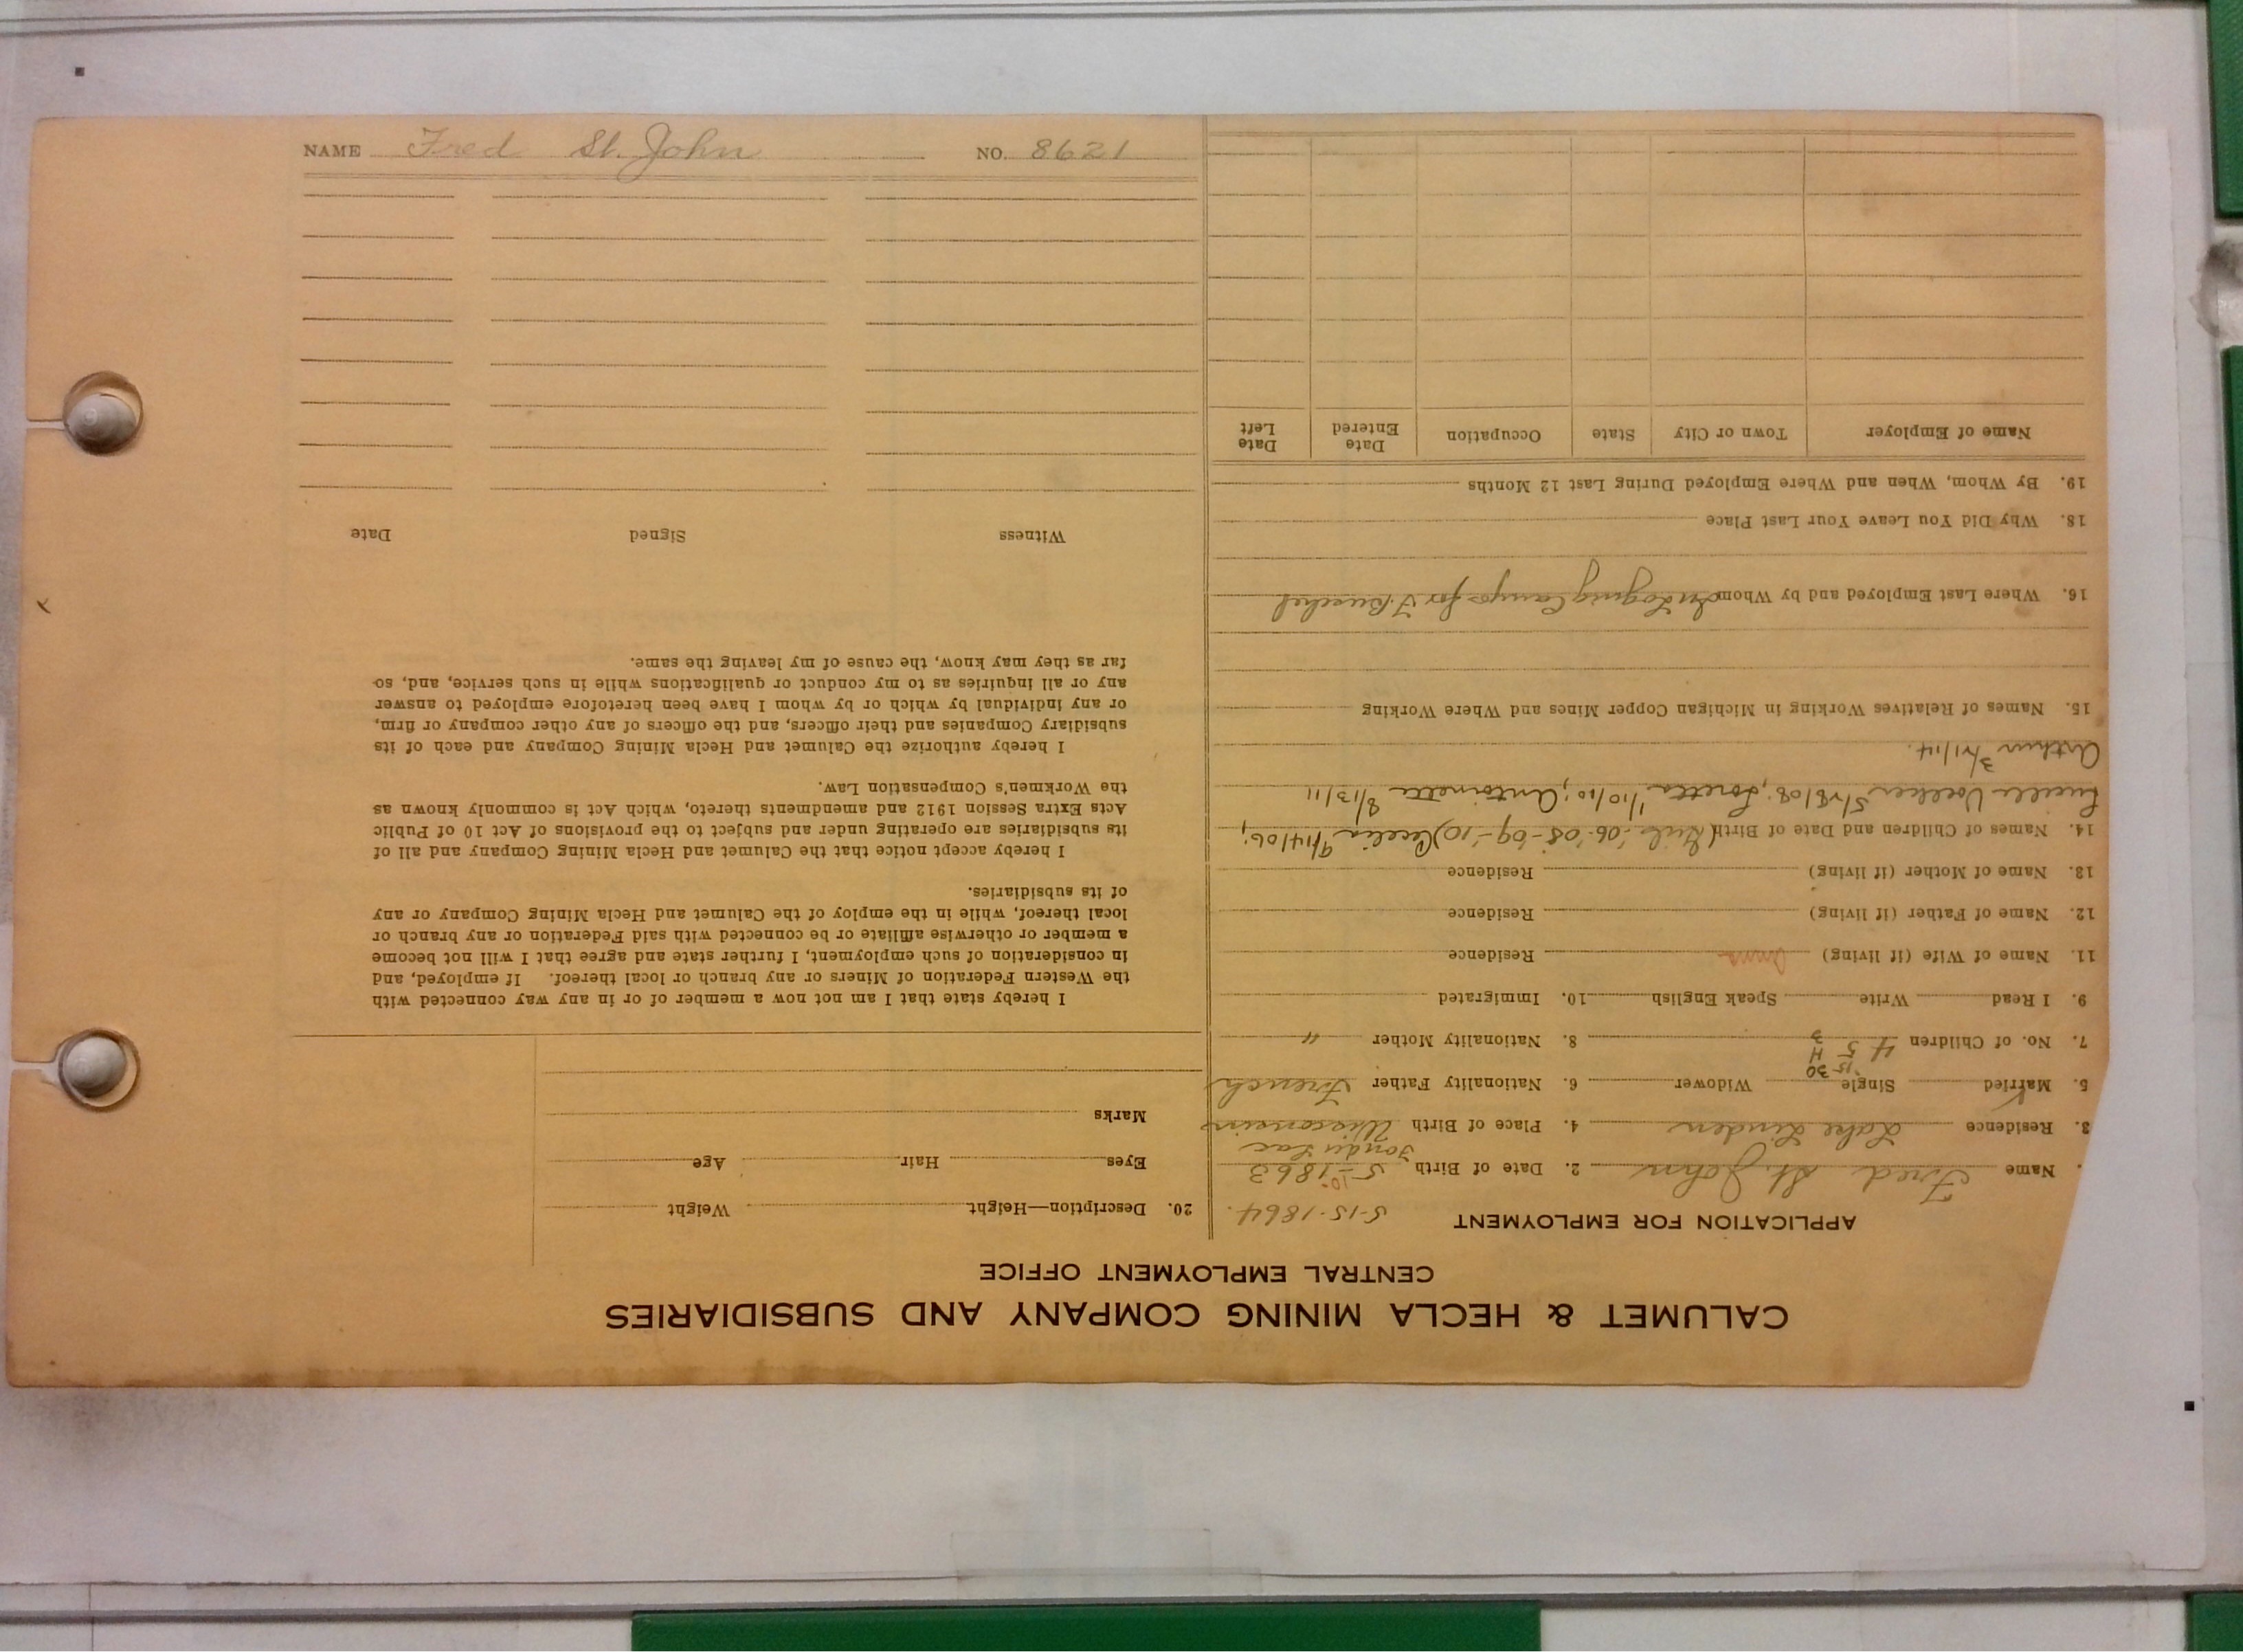 NAME Fred St. John NO. 8621
CALUMET & HECLA MINING COMPANY AND SUBSIDIARIES
CENTRAL EMPLOYMENT OFFICE
APPLICATION FOR EMPLOYMENT 5-15-1864.
Name Fred St. John 2. Date of Birth 5-10-1863
Fon du Lac
3. Residence Lake Linden 4. Place of Birth Wisconsin
5. Married Single Widower 6. Nationality Father French
15 30
7. No. of Children 4 5 8. Nationality Mother "
H 3
9. I Read Write Speak English 10. Immigrated
11. Name of Wife (if living) Anna Residence
12. Name of Father (if living) Residence
13. Name of Mother (if living) Residence
14. Names of Children and Date of Birth (Girls-'06-'08-'09-'10) Cecelia 9/14/06;
5/28/08; Loretta 1/10/10; Antoinetta 8/13/11
Arthur 3/21/14.
15. Names of Relatives Working in Michigan Copper Mines and Where Working
16. Where Last Employed and by Whom In Loging Camps for J. Bueschel
18. Why Did You Leave Your Last Place
19. By Whom, When and Where Employed During Last 12 Months
Name of Employer Town or City State Occupation Date Entered Date Left
20. Description—Height Weight
Eyes Hair Age
Marks
I hereby state that I am not now a member of or in any way connected with
the Western Federation of Miners or any branch or local thereof. If employed, and
in consideration of such employment, I further state and agree that I will not become
a member or otherwise affiliate or be connected with said Federation or any branch or
local thereof, while in the employ of the Calumet and Hecla Mining Company or any
of its subsidiaries.
I hereby accept notice that the Calumet and Hecla Mining Company and all of
its subsidiaries are operating under and subject to the provisions of Act 10 of Public
Acts Extra Session 1912 and amendments thereto, which Act is commonly known as
the Workmen's Compensation Law.
I hereby authorize the Calumet and Hecla Mining Company and each of its
subsidiary Companies and their officers, and the officers of any other company or firm,
or any individual by which or by whom I have been heretofore employed to answer
any or all inquiries as to my conduct or qualifications while in such service, and, so
far as they may know, the cause of my leaving the same.
Witness Signed Date